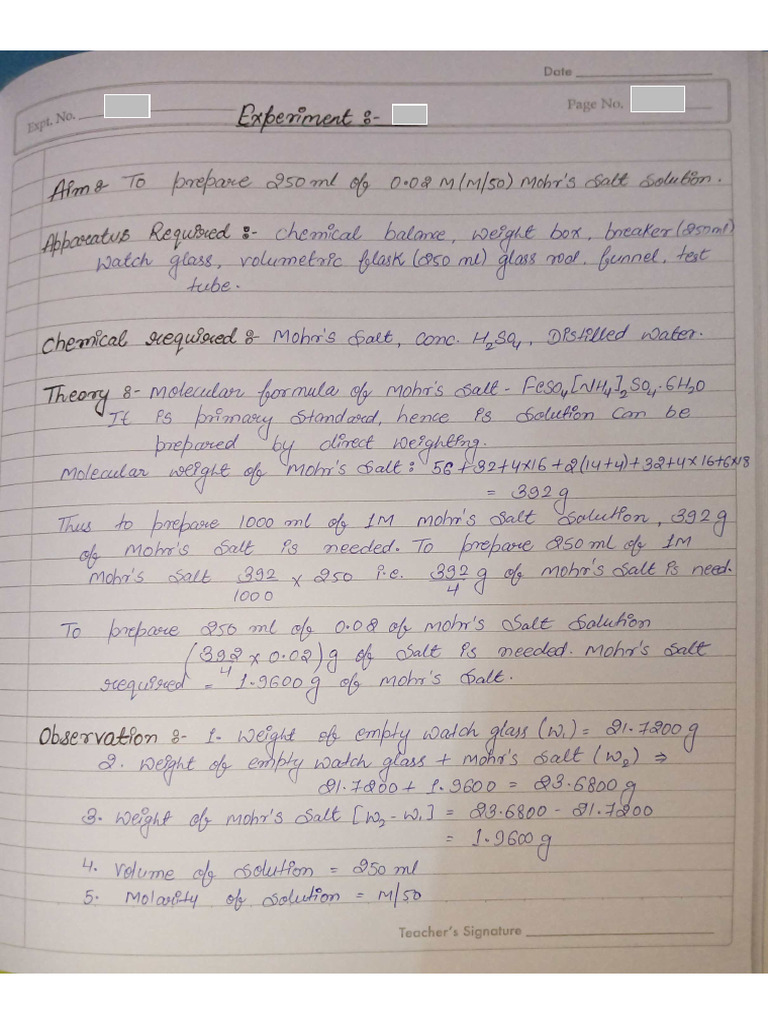 Date
Expt. No.
Experiment :-
Page No.
Aim : To prepare 250 ml of 0.02 M (M/50) Mohr's Salt Solution.
Apparatus Required :- Chemical balance, weight box, breaker (250ml)
watch glass, volumetric flask (250 ml) glass rod, funnel, test
tube.
Chemical required :- Mohr's Salt, Conc. H₂SO₄, Distilled water.
Theory :- Molecular formula of Mohr's Salt - FeSO₄[NH₄]₂SO₄.6H₂O
It is primary standard, hence is Solution can be
prepared by direct weighting.
Molecular weight of Mohr's Salt : 56 + 32 + 4×16 + 2(14+4) + 32 + 4×16+6×18
= 392 g
Thus to prepare 1000 ml of 1M Mohr's Salt Solution, 392 g
of Mohr's Salt is needed. To prepare 250 ml of 1M
Mohr's Salt 392/1000 × 250 i.e. 392/4 g of Mohr's Salt is need.
To prepare 250 ml of 0.02 of Mohr's Salt Solution
(392/4 × 0.02) g of Salt is needed. Mohr's Salt
required = 1.9600 g of Mohr's Salt.
Observation :- 1. Weight of empty watch glass (W₁) = 21.7200 g
2. Weight of empty watch glass + Mohr's Salt (W₂) ⇒
21.7200 + 1.9600 = 23.6800 g
3. Weight of Mohr's Salt [W₂ - W₁] = 23.6800 - 21.7200
= 1.9600 g
4. Volume of Solution = 250 ml
5. Molarity of Solution = M/50
Teacher's Signature